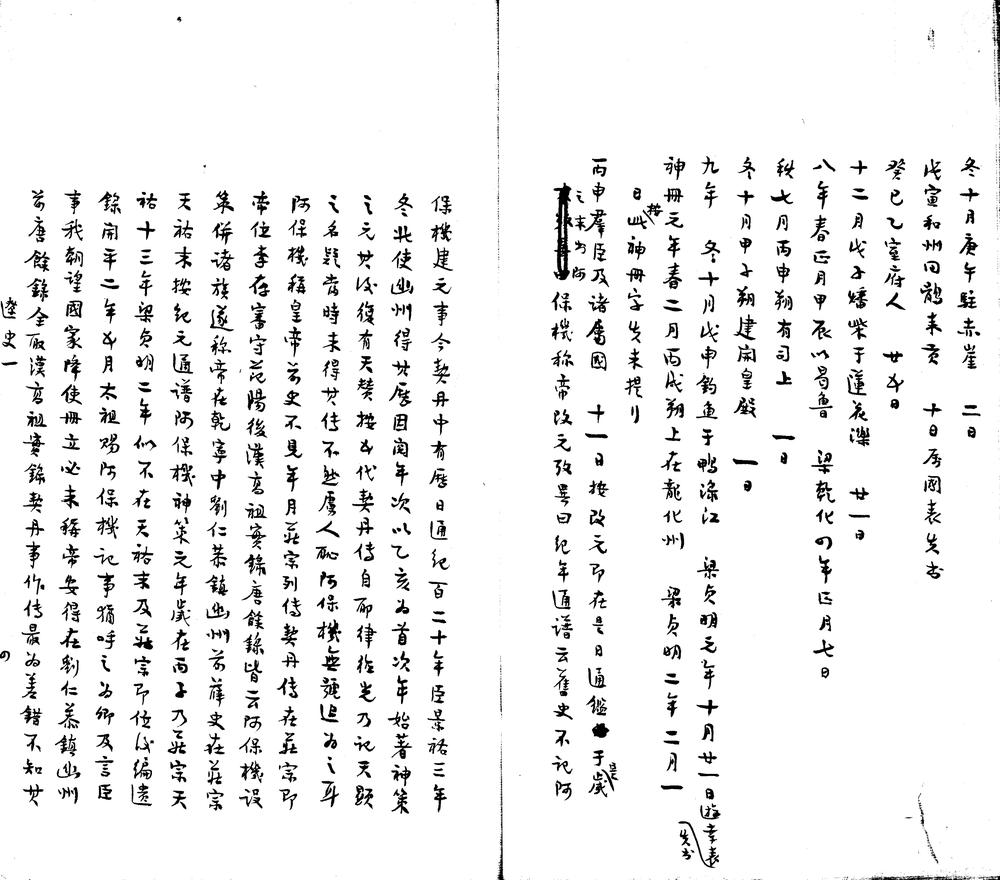 冬十月庚午駐赤崖　二日
戊寅和州回鶻来貢　十日属国表失書
癸巳乙室府人　廿五日
十二月戊子燔柴于蓮花濼　廿一日
八年春正月甲辰以曷魯　梁乾化四年正月七日
秋七月丙申朔有司上　一日
冬十月甲子朔建開皇殿　一日
九年　冬十月戊申釣魚于鴨淥江　梁貞明元年十月廿一日遊幸表失書
神冊元年春二月丙戌朔上在龍化州　梁貞明二年二月一
日按此神冊字先未提行
丙申羣臣及諸属國　十一日按改元即在是日通鑑于是歲
之末書阿
保機称帝改元攷異曰紀年通譜云舊史不記阿
保機建元事今契丹中有歷日通紀百二十年臣景祐三年
冬北使幽州得其歷因閲年次以乙亥為首次年始著神策
之元其後復有天贊按五代契丹傳自耶律德光乃記天顯
之名疑當時未得其傳不然虜人恥阿保機無號追為之耳
阿保機稱皇帝前史不見年月莊宗列傳契丹傳在莊宗即
帝位李存審守范陽後漢高祖實錄唐餘錄皆云阿保機設
策併諸族遂称帝在乾寧中劉仁恭鎮幽州前薛史在莊宗
天祐末按紀元通譜阿保機神策元年歲在丙子乃莊宗天
祐十三年梁貞明二年似不在天祐末及莊宗即位後編遺
錄開平二年五月太祖賜阿保機記事猶呼之為卿及言臣
事我朝望國家降使冊立必未稱帝安得在劉仁恭鎮幽州
前唐餘錄全取漢高祖實錄契丹事作傳最為差錯不知其
遼史一
四